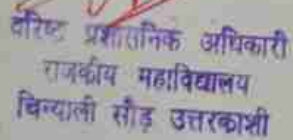 वरिष्ट प्रशासनिक अधिकारी
राजकीय महाविद्यालय
चिन्याली सौड़ उत्तरकाशी